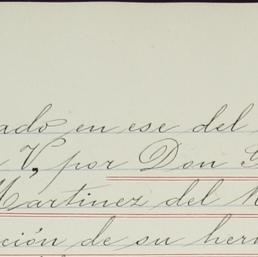 ado en ese del
V, por Don
Martinez del
ción de su her